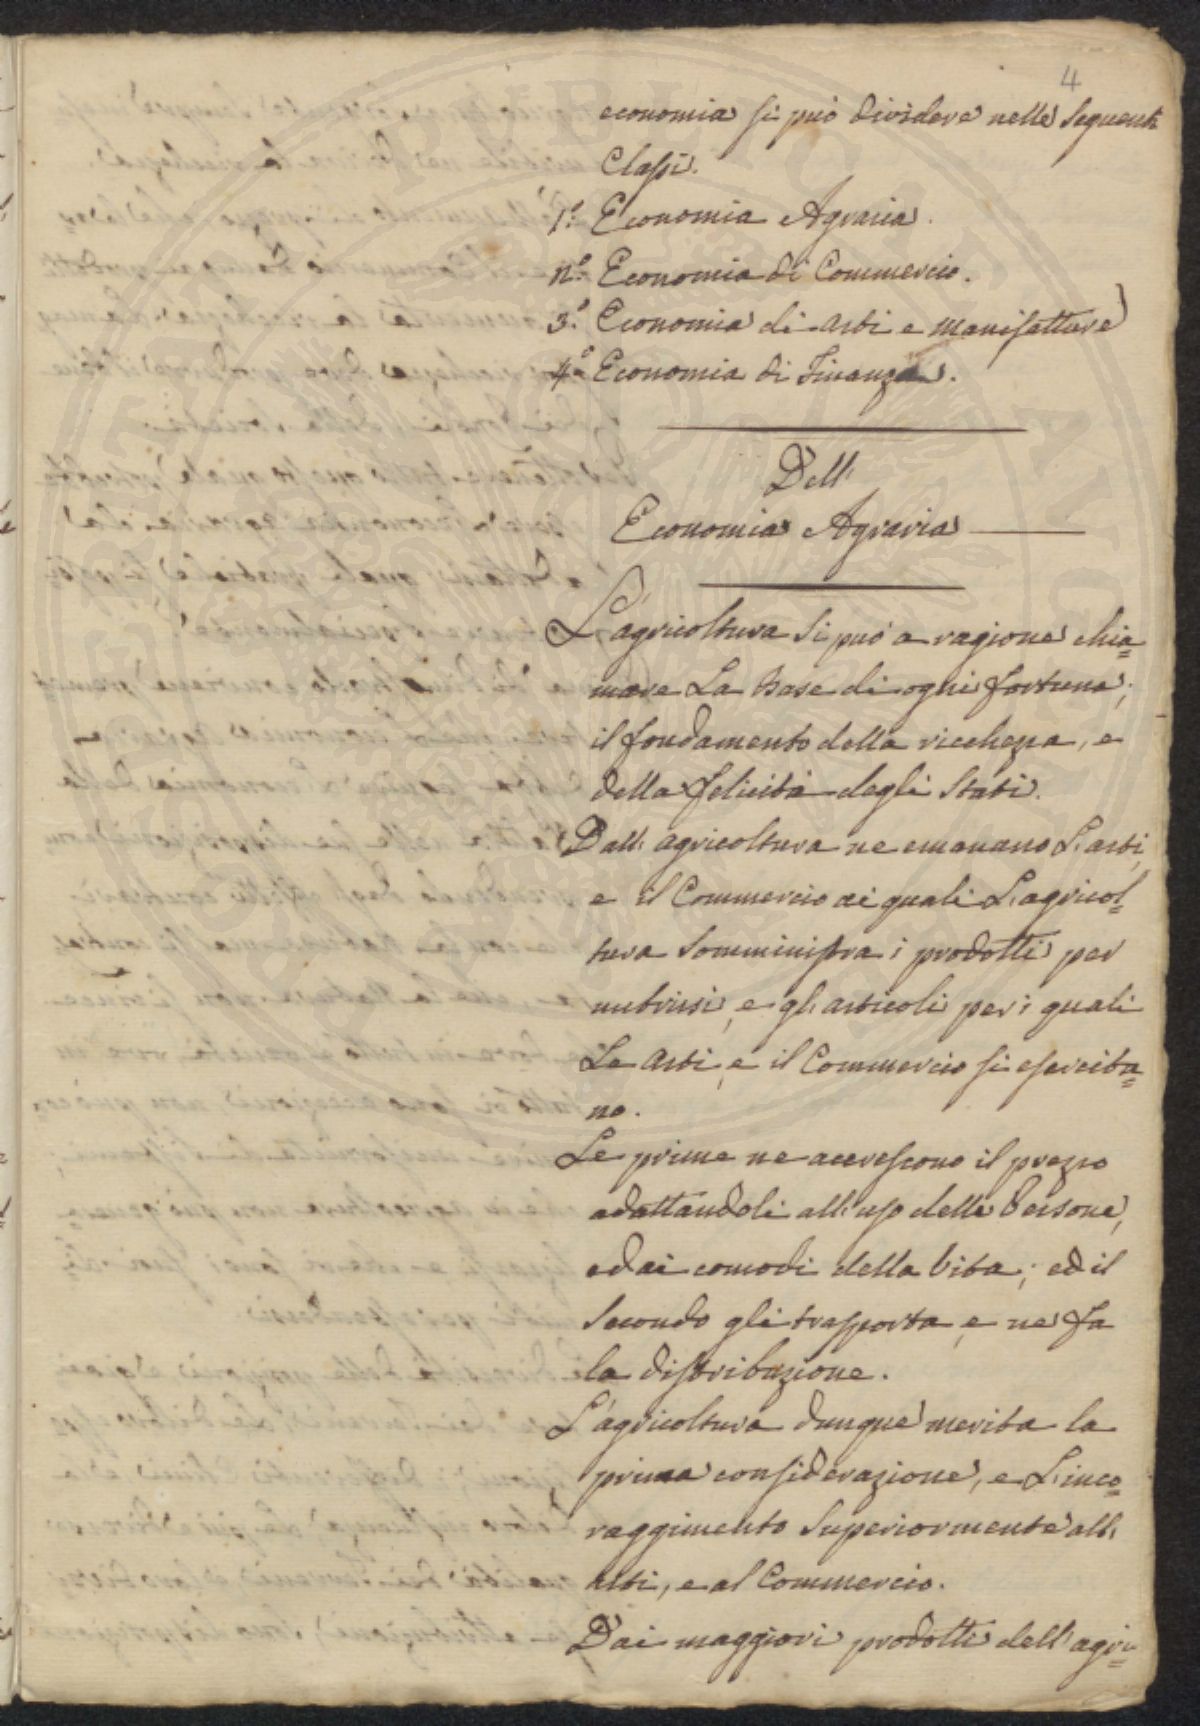 4
economia si può dividere nelle seguenti
Classi.
1.° Economia Agraria.
2.° Economia di Commercio.
3.° Economia di Arti e manifatture
4.° Economia di Finanza.
Dell'
Economia Agraria
L'agricoltura si può a ragione chia=
mare La Base di ogni fortuna;
il fondamento della ricchezza, e
della felicità degli Stati.
Dall'agricoltura ne emanano L'arti,
e il Commercio ai quali L'agricol=
tura somministra i prodotti per
nutrirsi, e gl'articoli per i quali
Le Arti, e il Commercio si esercita=
no.
Le prime ne accrescono il prezzo
adattandoli all'uso delle Persone,
ed ai comodi della Vita; ed il
Secondo gli trasporta, e ne fa
la distribuzione.
L'agricoltura dunque merita la
prima considerazione, e L'inco=
raggimento Superiormente all'
Arti, e al Commercio.
Dai maggiori prodotti dell'agri=